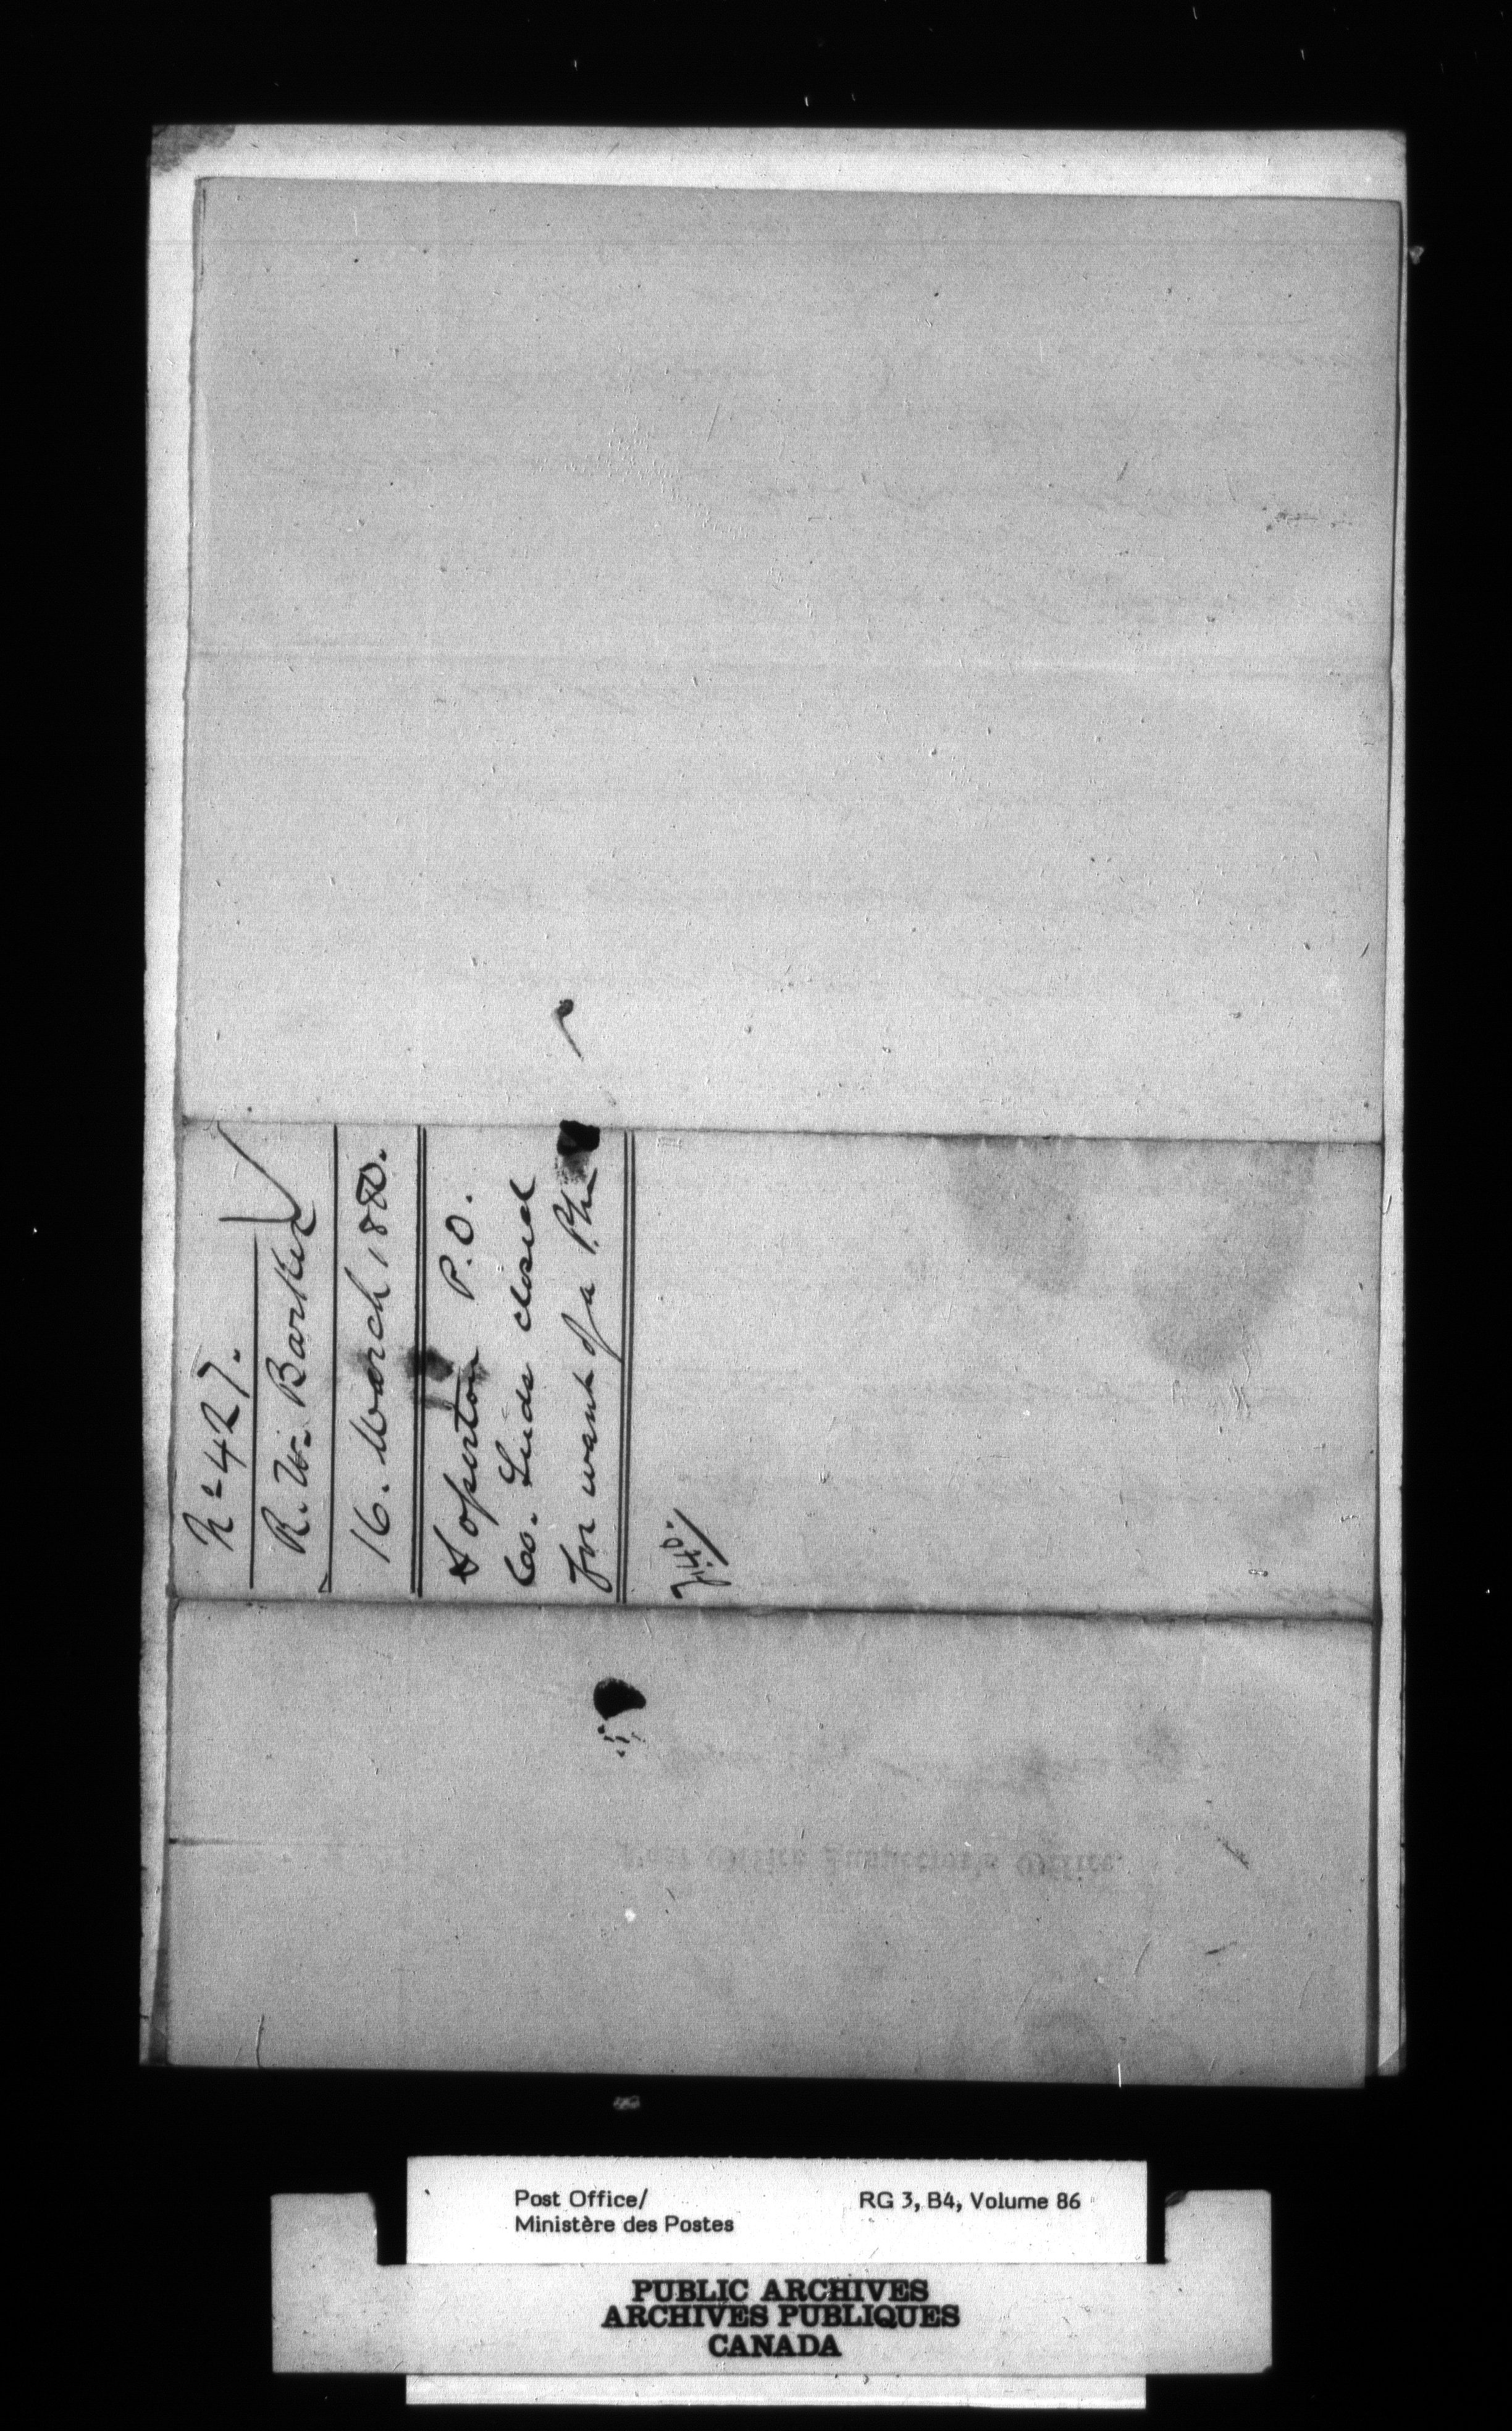 N=427.
R. W. Barker
16. March 1880.
Soperton P.O.
Co. Leeds closed
for want of a P.Mr
Post Office Inspector's Office.
Post Office/
Ministère des Postes
RG 3, B4, Volume 86
PUBLIC ARCHIVES
ARCHIVES PUBLIQUES
CANADA